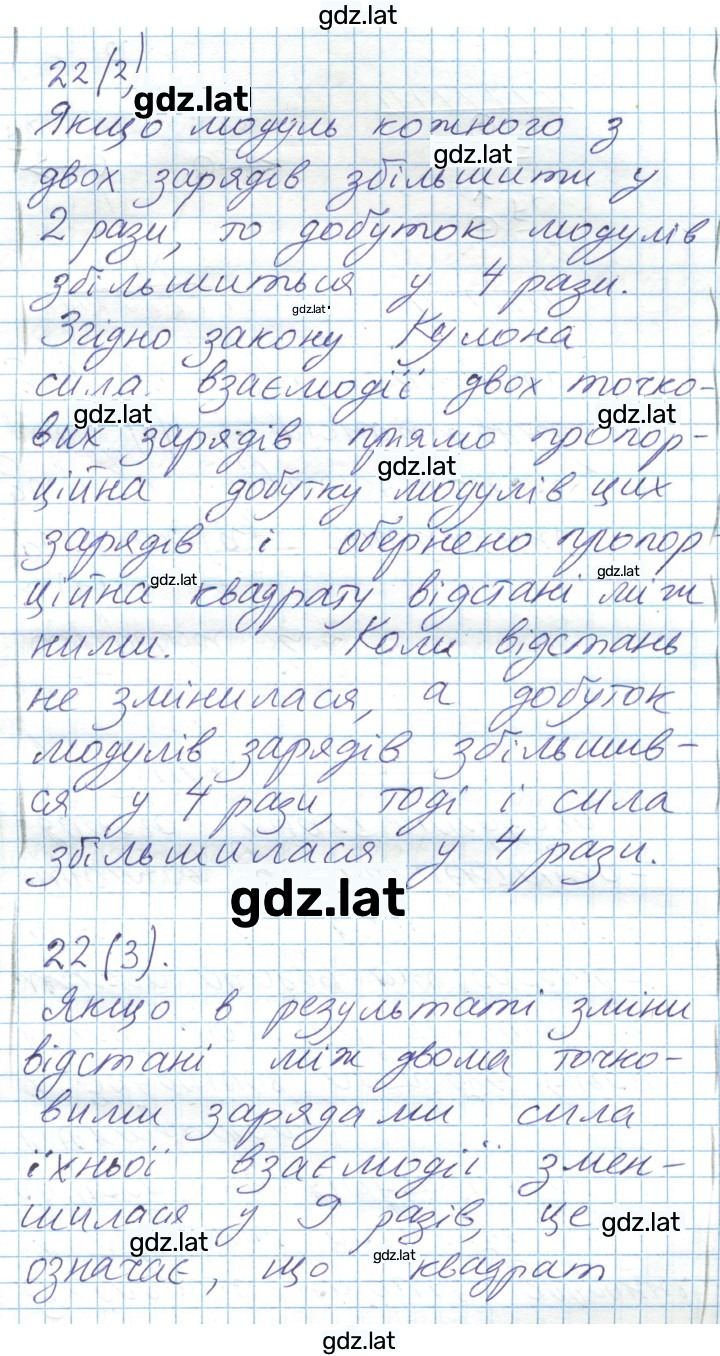 gdz.lat
22(2)
gdz.lat
Якщо модуль кожного з
gdz.lat
двох зарядів збільшити у
2 рази, то добуток модулів
збільшиться у 4 рази.
gdz.lat
Згідно закону Кулона
сила взаємодії двох точко-
gdz.lat gdz.lat
вих зарядів прямо пропор-
gdz.lat
ційна добутку модулів цих
зарядів і обернено пропор
gdz.lat gdz.lat
ційна квадрату відстані між
ними. Коли відстань
не змінилася, а добуток
модулів зарядів збільшив-
ся у 4 рази, тоді і сила
збільшилася у 4 рази.
gdz.lat
22(3).
Якщо в результаті зміни
відстані між двома точко-
вими зарядами сила
їхньої взаємодії змен-
шилася у 9 разів, це
gdz.lat
gdz.lat
gdz.lat
означає, що квадрат
gdz.lat